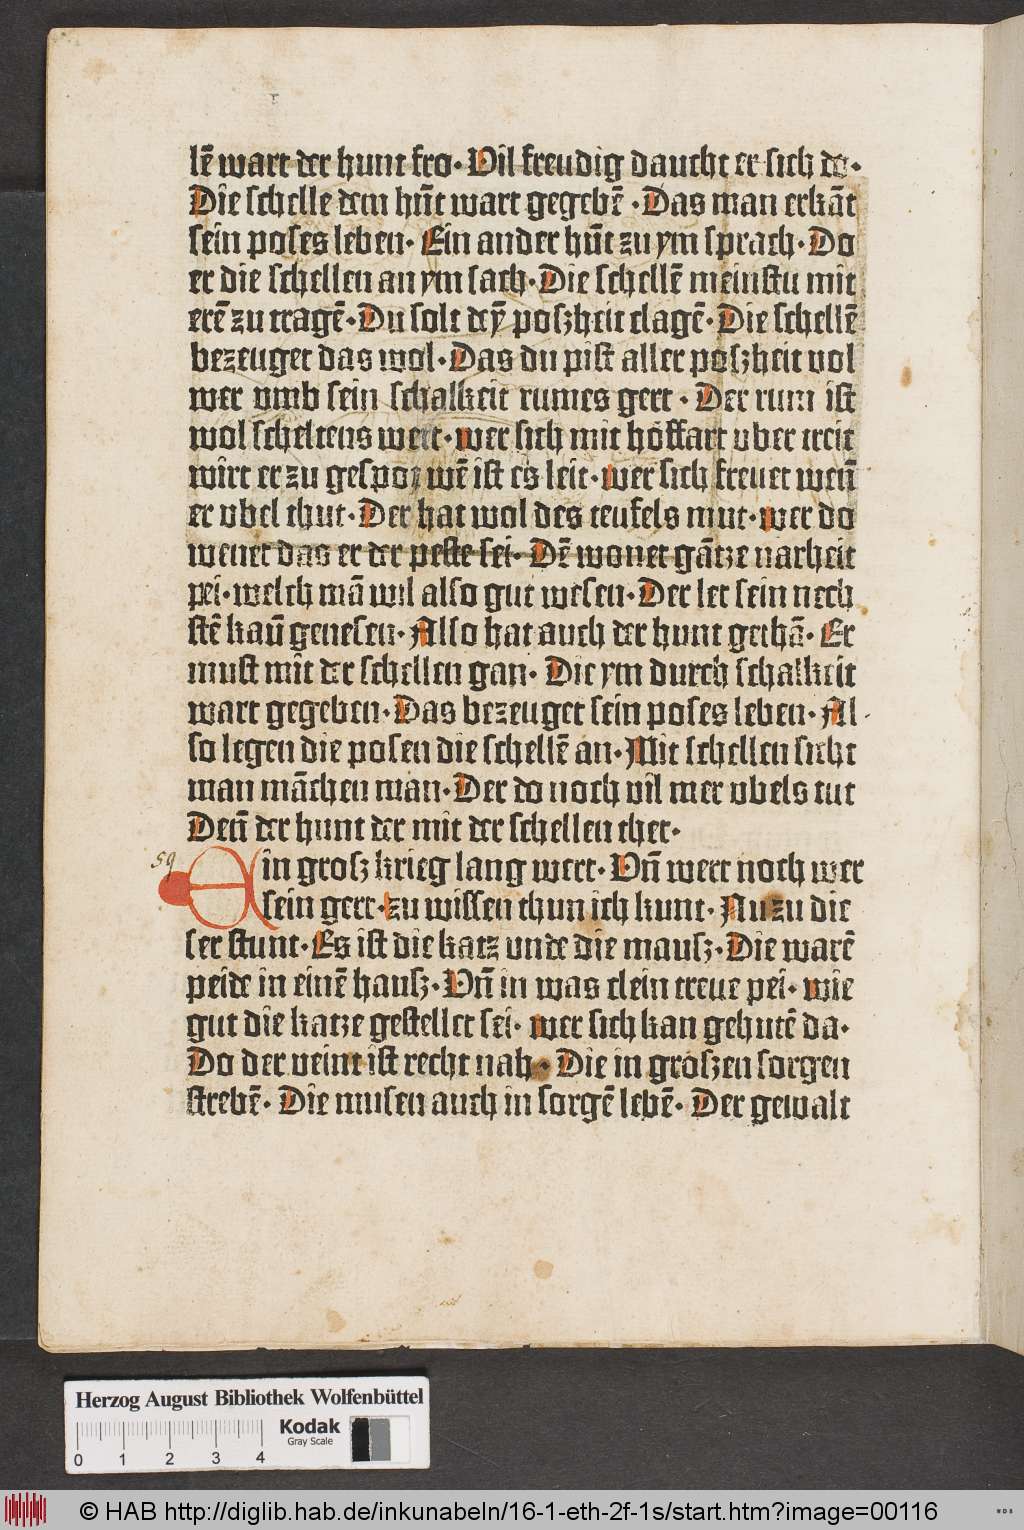 lē wart der hunt fro· Vil freudig daucht er sich do·
Die schelle dem hūt wart gegebē ·Das man erkāt
sein poses leben· Ein ander hūt zu ym sprach· Do
er die schellen an ym sach· Die schellē meinstu mit
erē zu tragē· Du solt dey̅ poszheit clagē· Die schellē
bezeuget das wol· Das du pist aller poszheit vol
wer vmb sein schalkeit rumes gert · Der rum ist
wol scheltens wert· wer sich mit hoffart vber treit
wirt er zu gespot wē ist es leit· wer sich freuet weū
er vbel thut· Der hat wol des teufels mut· wer do
wenet das er der peste sei· Dē wonet gātze narheit
pei· welch mā wil also gut wesen· Der let sein nech
stē kaū genesen· Also hat auch der hunt gethā· Er
must mit der schellen gan· Die ym durch schalkeit
wart gegeben· Das bezeuget sein poses leben· Al·
so legen die posen die schellē an· Mit schellen sicht
man māchen man· Der do noch vil mer vbels tut
Deñ der hunt der mit der schellen thet·
59 Ein grosz krieg lang wert· Vñ wert noch wer
sein gert· zu wissen thun ich kunt· Nu zu die
ser stunt· Es ist die katz vnde die mausz· Die warē
peide in einē hausz· Vñ in was clein treue pei· wie
gut die katze gestellet sei· wer sich kan gehutē da·
Do der veint ist recht nah · Die in groszen sorgen
strebē· Die musen auch in sorgē lebē· Der gewalt
Herzog August Bibliothek Wolfenbüttel
Kodak
Gray Scale
0 1 2 3 4
© HAB http://diglib.hab.de/inkunabeln/16-1-eth-2f-1s/start.htm?image=00116